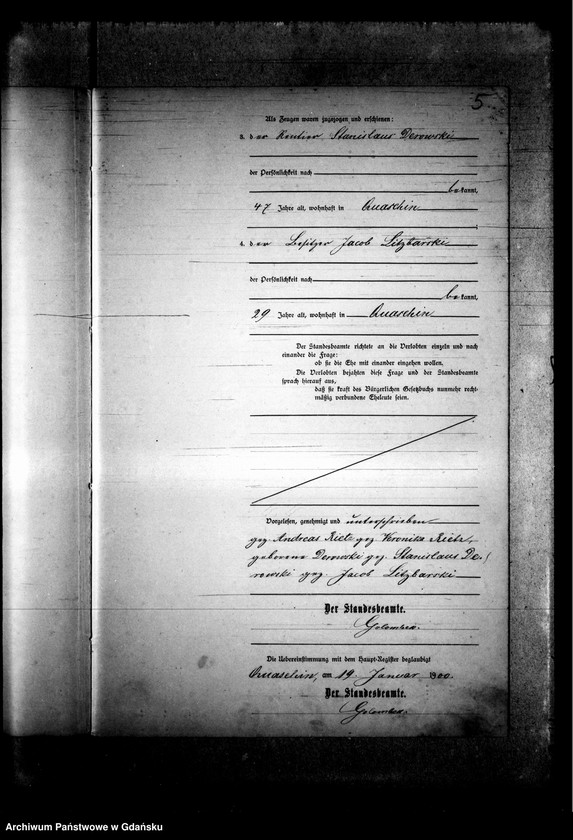 5
Als Zeugen waren zugezogen und erschienen:
3. der Rentier Stanislaus Derowski
der Persönlichkeit nach
bekannt,
47 Jahre alt, wohnhaft in Quaschin
;
4. der Besitzer Jacob Litzbarski
der Persönlichkeit nach
bekannt,
29 Jahre alt, wohnhaft in Quaschin
Der Standesbeamte richtete an die Verlobten einzeln und nach
einander die Frage:
ob sie die Ehe mit einander eingehen wollen.
Die Verlobten bejahten diese Frage und der Standesbeamte
sprach hierauf aus,
daß sie kraft des Bürgerlichen Gesetzbuchs nunmehr recht-
mäßig verbundene Eheleute seien.
Vorgelesen, genehmigt und unterschrieben
gez. Andreas Rietz gez. Veronika Rietz,
geborene Derowski gez. Stanislaus De-
rowski gez. Jacob Litzbarski
Der Standesbeamte.
Golombek.
Die Uebereinstimmung mit dem Haupt-Register beglaubigt
Quaschin, am 19. Januar 1900.
Der Standesbeamte.
Golombek.
Archiwum Państwowe w Gdańsku